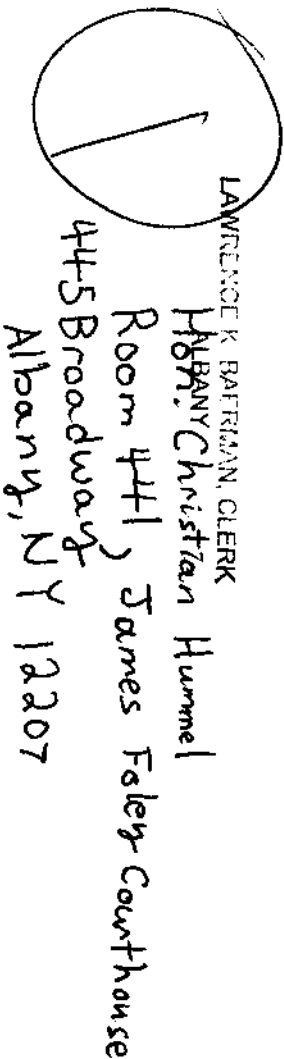 LAWRENCE K. BAERMAN, CLERK
ALBANY
Hon. Christian Hummel
Room 441, James Foley Courthouse
445 Broadway
Albany, NY 12207